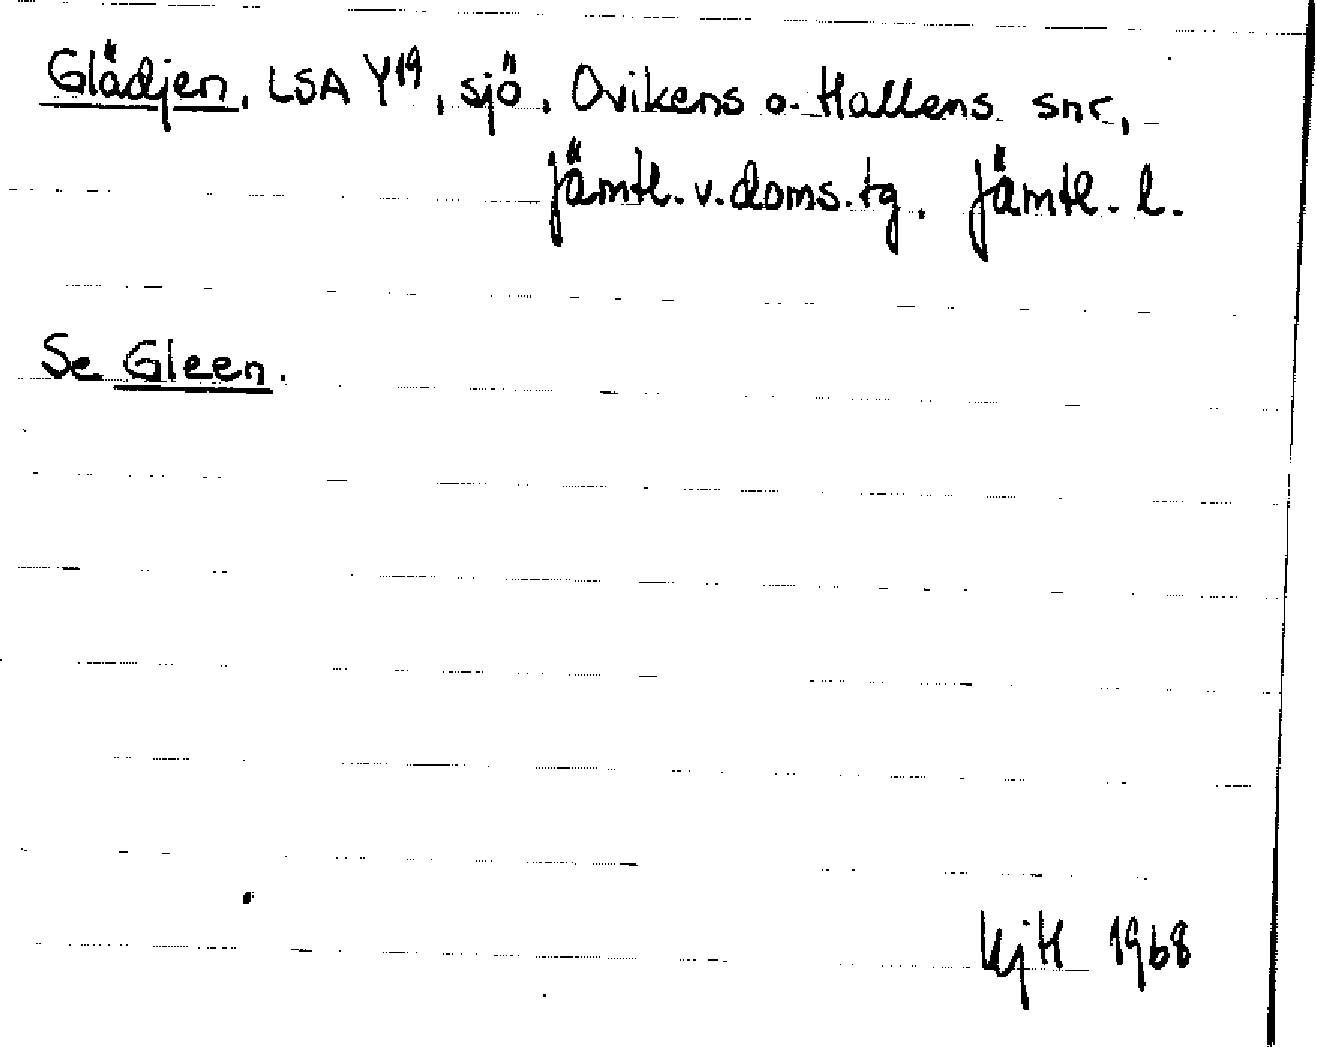 Glädjen, LSA Y¹⁹, sjö, Ovikens o. Hallens snr,
Jämtl. v. doms. tg. Jämtl. l.
Se Gleen.
KjH 1968